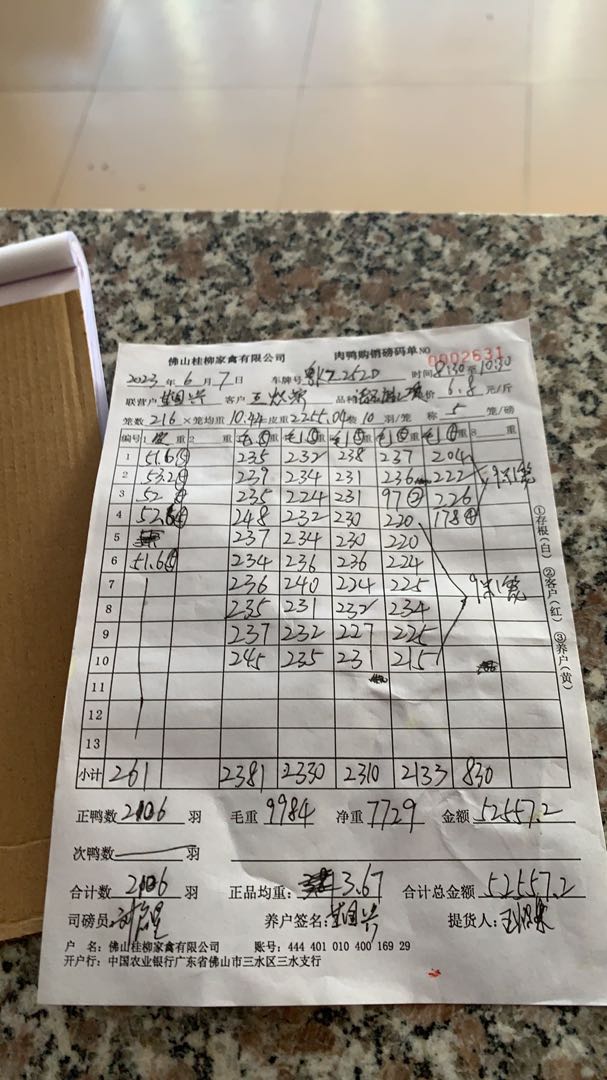 佛山桂柳家禽有限公司 肉鸭购销磅码单 NO 0002631
2023 年 6 月 7 日 车牌号 时间 8:30 至 10:30
联营户 客户 品种 价 6.8 元/斤
笼数 216 × 笼均重 10.44 = 皮重 2255.04 装 10 羽/笼 称 5 笼/磅
编号 1 重 2 重 重 重 重 重 重 8 重
1 51.6⑤ 235 232 238 237 204
2 53.2⑤ 239 234 231 236 222
3 52 235 224 231 97② 226
4 248 232 230 220 178④
5 237 234 230 220
6 51.6⑤ 234 236 236 224
7 236 240 224 225
8 235 231 232 234
9 237 232 227 225
10 245 235 231 215
11
12
13
小计 261 2381 2330 2310 2133 830
①存根(白) ②客户(红) ③养户(黄)
正鸭数 2106 羽 毛重 9984 净重 7729 金额 52557.2
次鸭数 羽
合计数 2106 羽 正品均重: 3.67 合计总金额 52557.2
司磅员: 养户签名: 提货人:
户 名: 佛山桂柳家禽有限公司 账号: 444 401 010 400 169 29
开户行: 中国农业银行广东省佛山市三水区三水支行